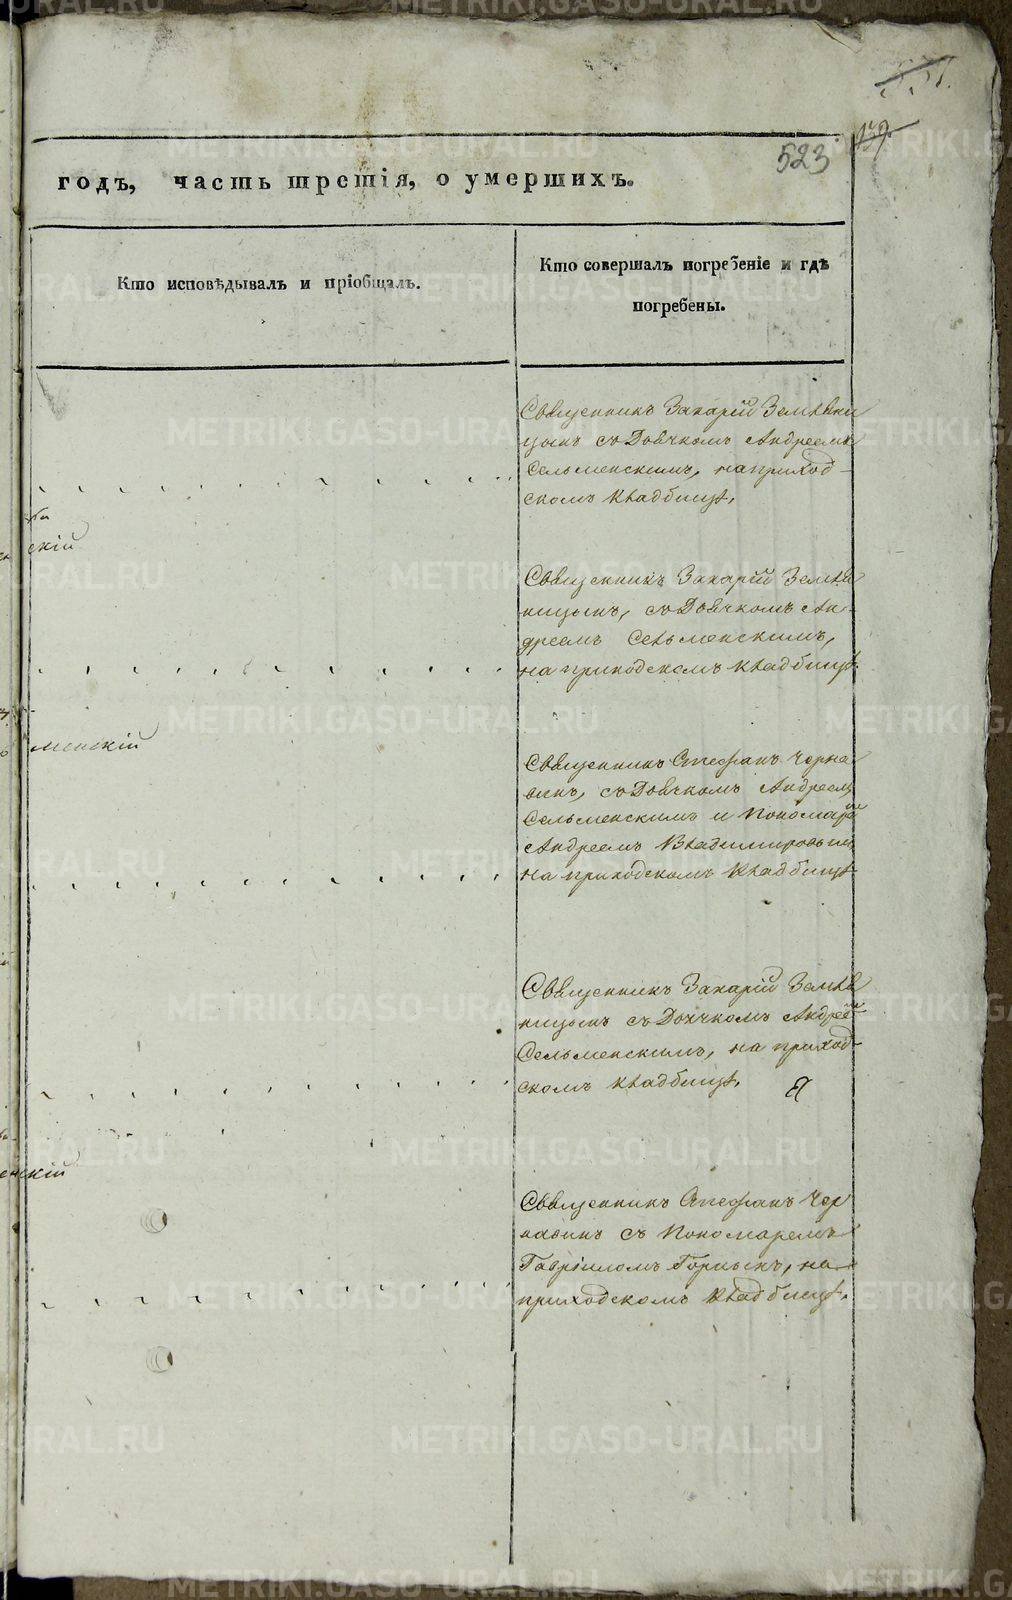 139.
523
годъ, часть третія, о умершихъ.
Кто исповѣдывалъ и пріобщалъ.
Кто совершалъ погребеніе и гдѣ
погребены.
Священникъ Захарій Земляни
цынъ съ Дьячкомъ Андреемъ
Сельменскимъ, на приход-
скомъ кладбищѣ.
скій
Священникъ Захарій Земля
ницынъ, съ Дьячкомъ Ан-
дреемъ Сельменскимъ,
на приходскомъ кладбищѣ.
менскій
Священникъ Стефанъ Черна
винъ, съ Дьячкомъ Андреемъ
Сельменскимъ и Пономаремъ
Андреемъ Владимировымъ
на приходскомъ кладбищѣ
Священникъ Захарій Земля
ницынъ съ Дьячкомъ Андреемъ
Сельменскимъ, на приход-
скомъ кладбищѣ.
енскій
Священникъ Стефанъ Чер
навинъ съ Пономаремъ
Гавріиломъ Горнымъ, на
приходскомъ кладбищѣ.
METRIKI.GASO-URAL.RU